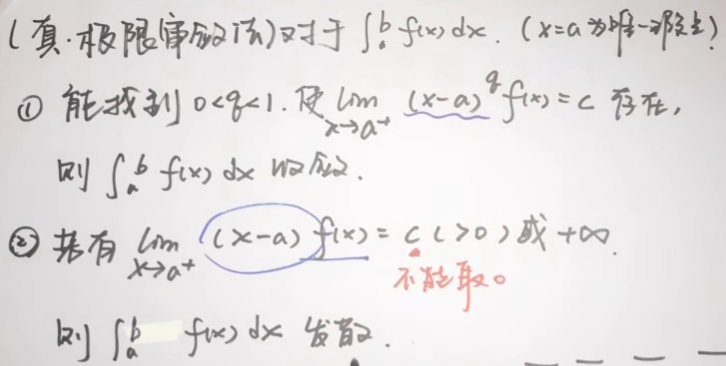 (真·极限审敛法)对于 ∫_a^b f(x) dx. (x=a为唯一瑕点)
① 能找到 0<q<1. 使 lim_{x→a⁺} (x-a)^q f(x) = c 存在,
则 ∫_a^b f(x) dx 收敛.
② 若有 lim_{x→a⁺} (x-a) f(x) = c (>0) 或 +∞.
不能取0
则 ∫_a^b f(x) dx 发散.